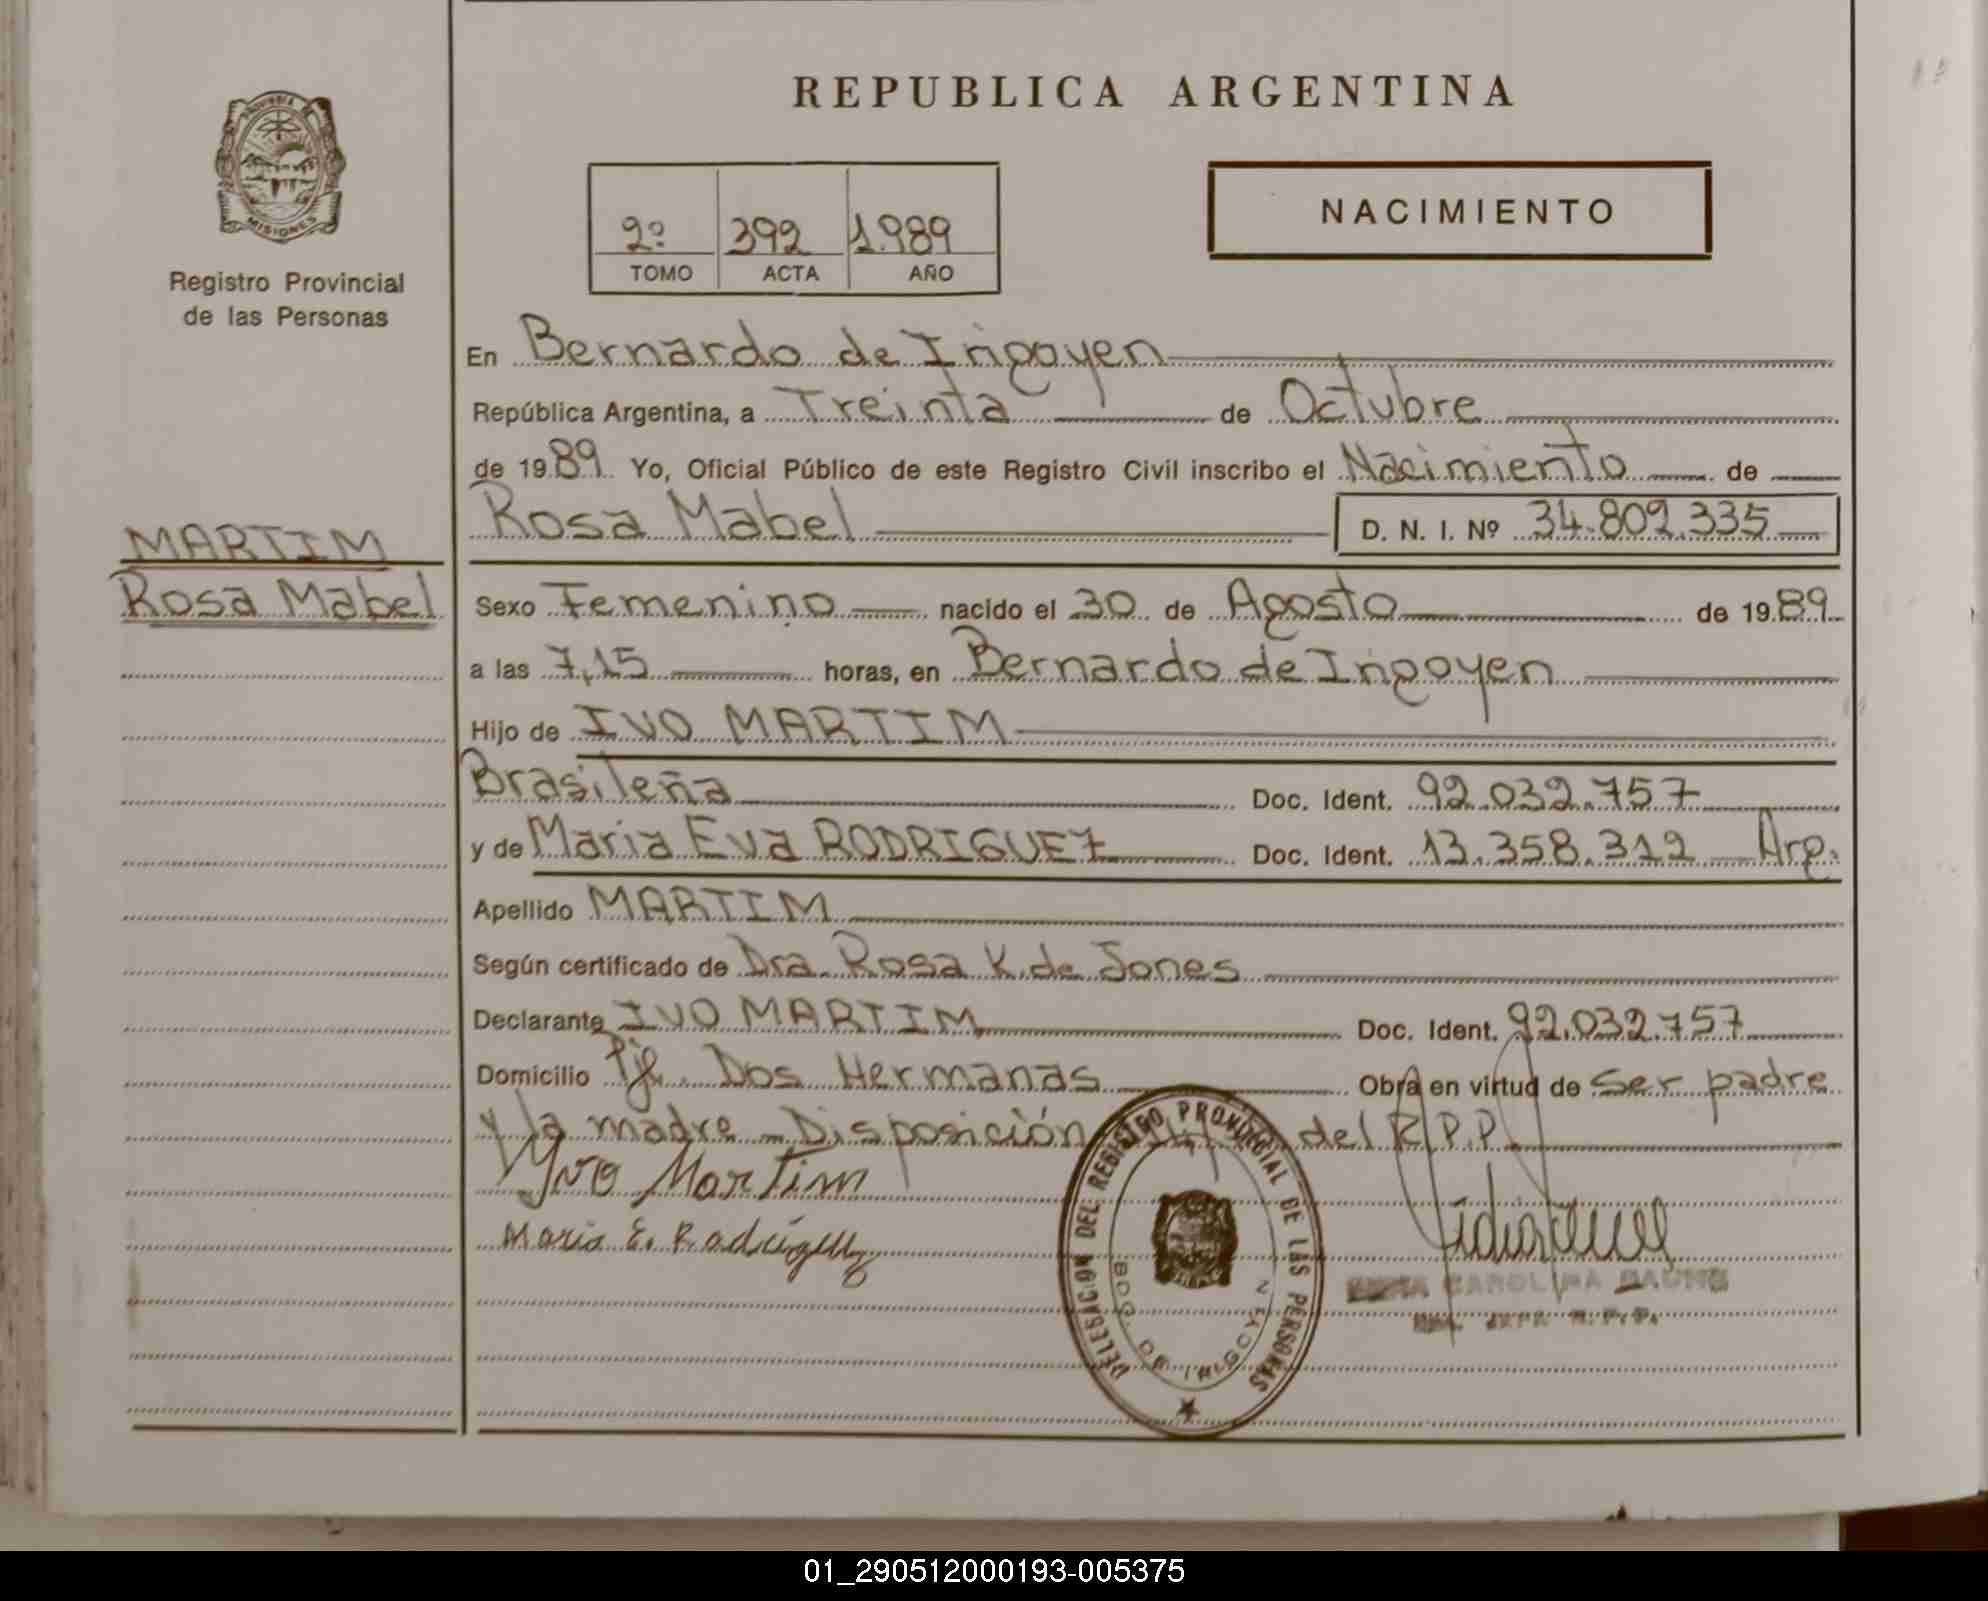 REPUBLICA ARGENTINA
PROVINCIA
MISIONES
Registro Provincial
de las Personas
2º 392 1.989
TOMO ACTA AÑO
NACIMIENTO
En Bernardo de Irigoyen
República Argentina, a Treinta de Octubre
de 1989 Yo, Oficial Público de este Registro Civil inscribo el Nacimiento de
Rosa Mabel D. N. I. Nº 34.809.335
MARTIM
Rosa Mabel
Sexo Femenino nacido el 30 de Agosto de 1989
a las 7,15 horas, en Bernardo de Irigoyen
Hijo de IVO MARTIM
Brasileña Doc. Ident. 92.032.757
y de Maria Eva RODRIGUEZ Doc. Ident. 13.358.312 Arg.
Apellido MARTIM
Según certificado de Dra. Rosa K. de Jones
Declarante IVO MARTIM Doc. Ident. 92.032.757
Domicilio Pje. Dos Hermanas Obra en virtud de Ser padre
y la madre - Disposición del R.P.P.
Yvo Martim
Maria E. Rodríguez
DELEGACION DEL REGISTRO PROVINCIAL DE LAS PERSONAS
BDO. DE IRIGOYEN
CAROLINA
R.P.P.
01_290512000193-005375